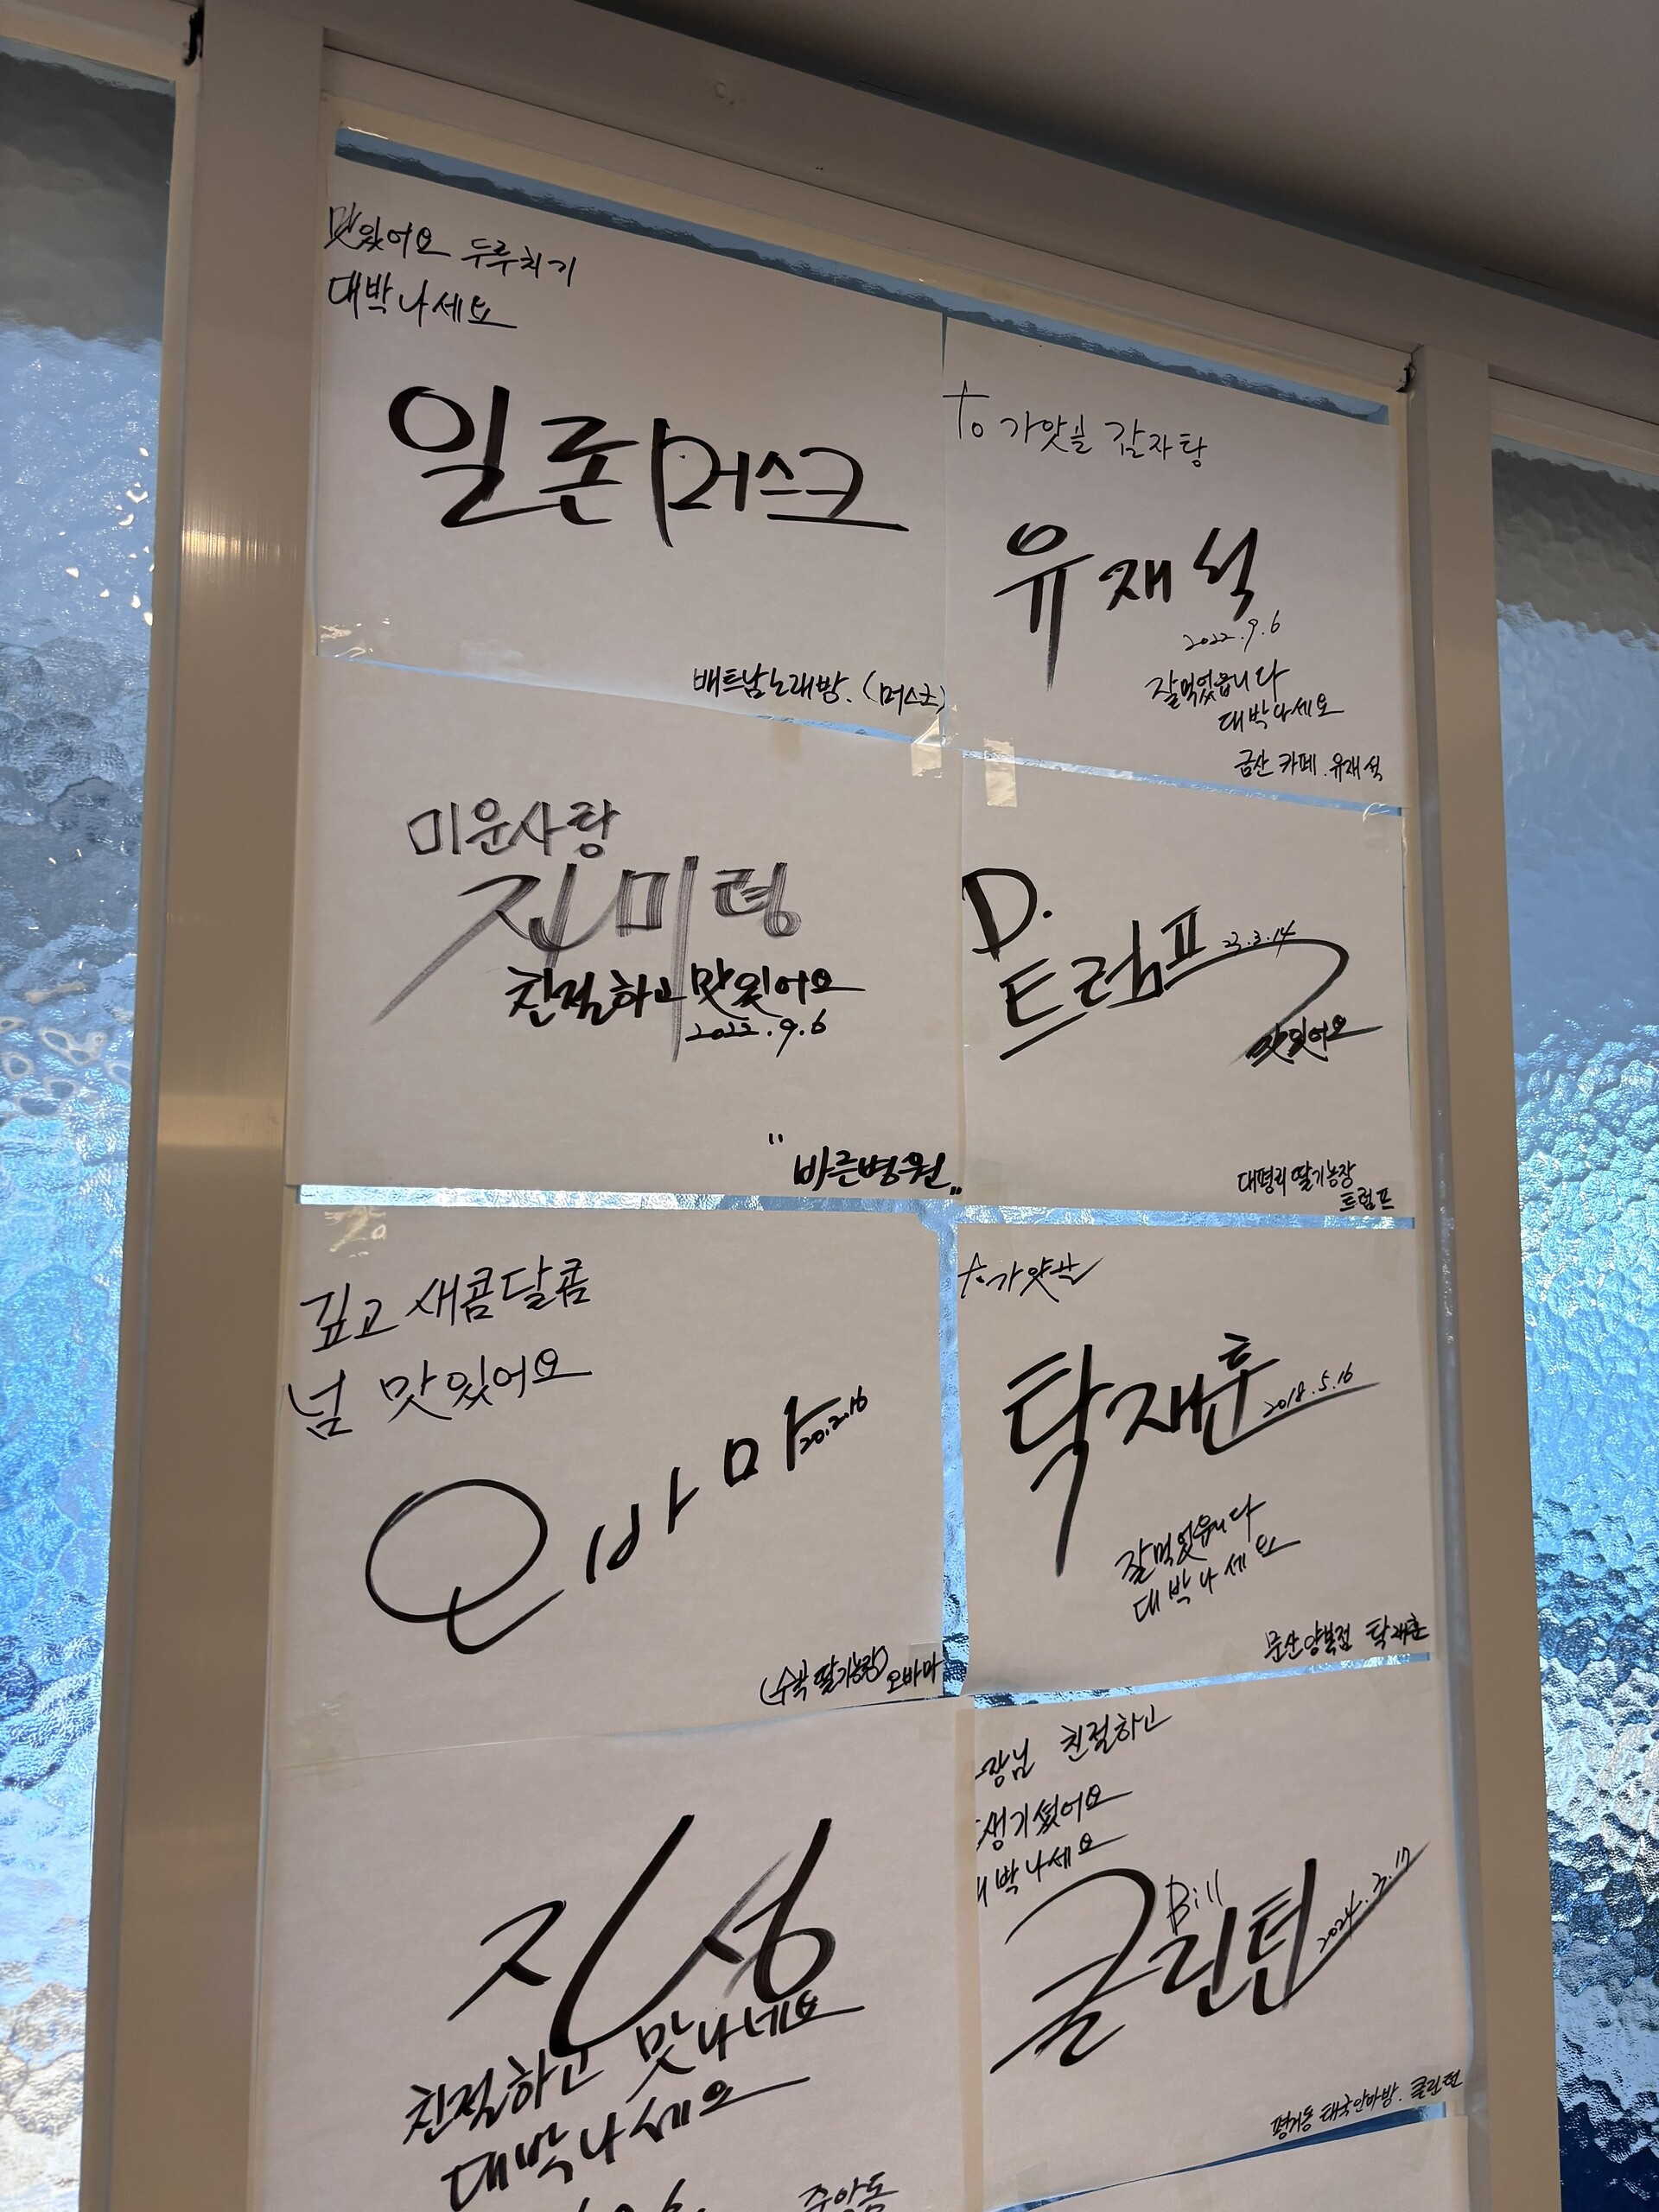 맛있어요 두루치기
대박나세요
일론 머스크
배트남노래방. (머스크)
to 가얏골 감자탕
유재석
2022.9.6
잘먹었읍니다
대박나세요
금산 카페. 유재석
미운사랑
진미령
친절하고 맛있어요
2022.9.6
"바른병원"
D.
트럼프 23.3.14
맛있어요
대평리 딸기농장
트럼프
깊고 새콤달콤
넘 맛있어요
오바마 20.2.16
(수곡 딸기농장) 오바마
to 가얏골
탁재훈 2018.5.16
잘먹었읍니다
대박나세요
문산양복점 탁재훈
진성
친절하고 맛나네요
대박나세요
주약동
장님 친절하고
생기셨어요
박나세요
Bill
클린턴 2024.3.17
평거동 태국안마방. 클린턴